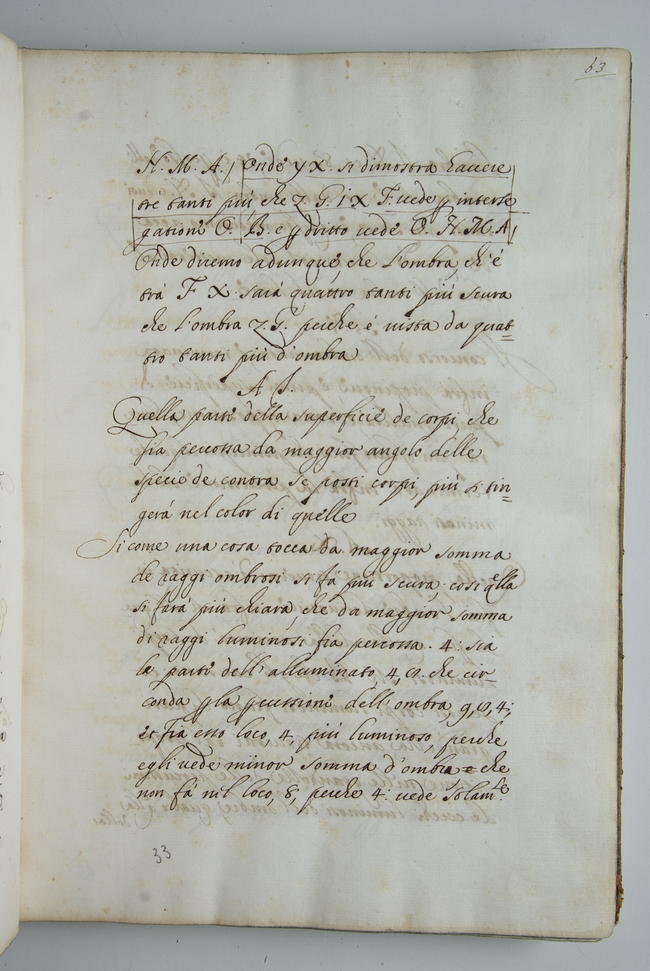 63
H. M. A. / Onde y x. si dimostra hauere
tre tanti più che z. G. i x F. uede p interse
gationi O. B. e p dritto uede O. H. M. A/
Onde diremo adunque, che l'ombra, ch'é
trà F X. sará quattro tanti più scura
che l'ombra z. G. perche é uista da quat=
tro tanti più d'ombra
A S.
Quella parte della superficie de corpi, che
fia percossa da maggior angolo delle
specie de contra se posti corpi più si tin=
gerá nel color di quelle
Si come una cosa tocca da maggior somma
de raggi ombrosi si fá più scura, cosi qlla
si fará più chiara, che da maggior somma
di raggi luminosi fia percossa. 4: sia
la parte dell'alluminato, 4, che cir-
conda p la pcussione dell'ombra, 9, 4;
et fia esso loco, 4, più luminoso, perche
egli uede minor somma d'ombra che
non fá nil loco, 8, perche 4: uede solam.te
33